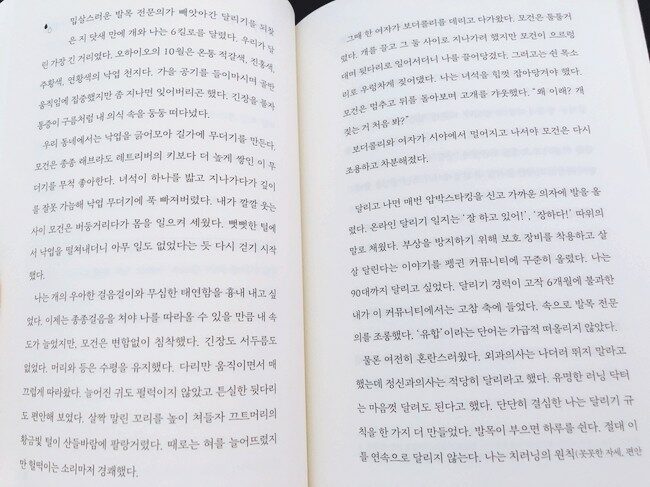 밉살스러운 발목 전문의가 빼앗아간 달리기를 되찾
은 지 닷새 만에 개와 나는 6킬로를 달렸다. 우리가 달
린 가장 긴 거리였다. 오하이오의 10월은 온통 적갈색, 진홍색,
주황색, 연황색의 낙엽 천지다. 가을 공기를 들이마시며 골반
움직임에 집중했지만 좀 지나면 잊어버리곤 했다. 긴장을 풀자
통증이 구름처럼 내 의식 속을 둥둥 떠다녔다.
우리 동네에서는 낙엽을 긁어모아 길가에 무더기를 만든다.
모건은 종종 래브라도 레트리버의 키보다 더 높게 쌓인 이 무
더기를 무척 좋아한다. 녀석이 하나를 밟고 지나가다가 깊이
를 잘못 가늠해 낙엽 무더기에 푹 빠져버렸다. 내가 깔깔 웃는
사이 모건은 버둥거리다가 몸을 일으켜 세웠다. 뻣뻣한 털에
서 낙엽을 떨쳐내더니 아무 일도 없었다는 듯 다시 걷기 시작
했다.
나는 개의 우아한 걸음걸이와 무심한 태연함을 흉내 내고 싶
었다. 이제는 종종걸음을 쳐야 나를 따라올 수 있을 만큼 내 속
도가 늘었지만, 모건은 변함없이 침착했다. 긴장도 서두름도
없었다. 머리와 등은 수평을 유지했다. 다리만 움직이면서 매
끄럽게 따라왔다. 늘어진 귀도 펄럭이지 않았고 튼실한 뒷다리
도 편안해 보였다. 살짝 말린 꼬리를 높이 쳐들자 끄트머리의
황금빛 털이 산들바람에 팔랑거렸다. 때로는 혀를 늘어뜨렸지
만 헐떡이는 소리마저 경쾌했다.
그때 한 여자가 보더콜리를 데리고 다가왔다. 모건은 동물거
렸다. 개를 끌고 그 둘 사이로 지나가려 했지만 모건이 으르렁
대며 뒷다리로 일어서더니 나를 끌어당겼다. 그러고는 쉰 목소
리로 우렁차게 짖어댔다. 나는 녀석을 힘껏 잡아당겨야 했다.
모건은 멈추고 뒤를 돌아보며 고개를 갸웃했다. “왜 이래? 개
짖는 거 처음 봐?”
보더콜리와 여자가 시야에서 멀어지고 나서야 모건은 다시
조용하고 차분해졌다.
달리고 나면 매번 압박스타킹을 신고 가까운 의자에 발을 올
렸다. 온라인 달리기 일지는 ‘잘 하고 있어!’, ‘잘하다!’ 따위의
말로 채웠다. 부상을 방지하기 위해 보호 장비를 착용하고 살
살 달린다는 이야기를 펭귄 커뮤니티에 꾸준히 올렸다. 나는
90대까지 달리고 싶었다. 달리기 경력이 고작 6개월에 불과한
내가 이 커뮤니티에서는 고참 축에 들었다. 속으로 발목 전문
의를 조롱했다. ‘유합’이라는 단어는 가급적 떠올리지 않았다.
물론 여전히 혼란스러웠다. 외과의사는 나더러 뛰지 말라고
했는데 정신과의사는 적당히 달리라고 했다. 유명한 러닝 닥터
는 마음껏 달려도 된다고 했다. 단단히 결심한 나는 달리기 규
칙을 한 가지 더 만들었다. 발목이 부으면 하루를 쉰다. 절대 이
틀 연속으로 달리지 않는다. 나는 치러닝의 원칙(꼿꼿한 자세, 편안